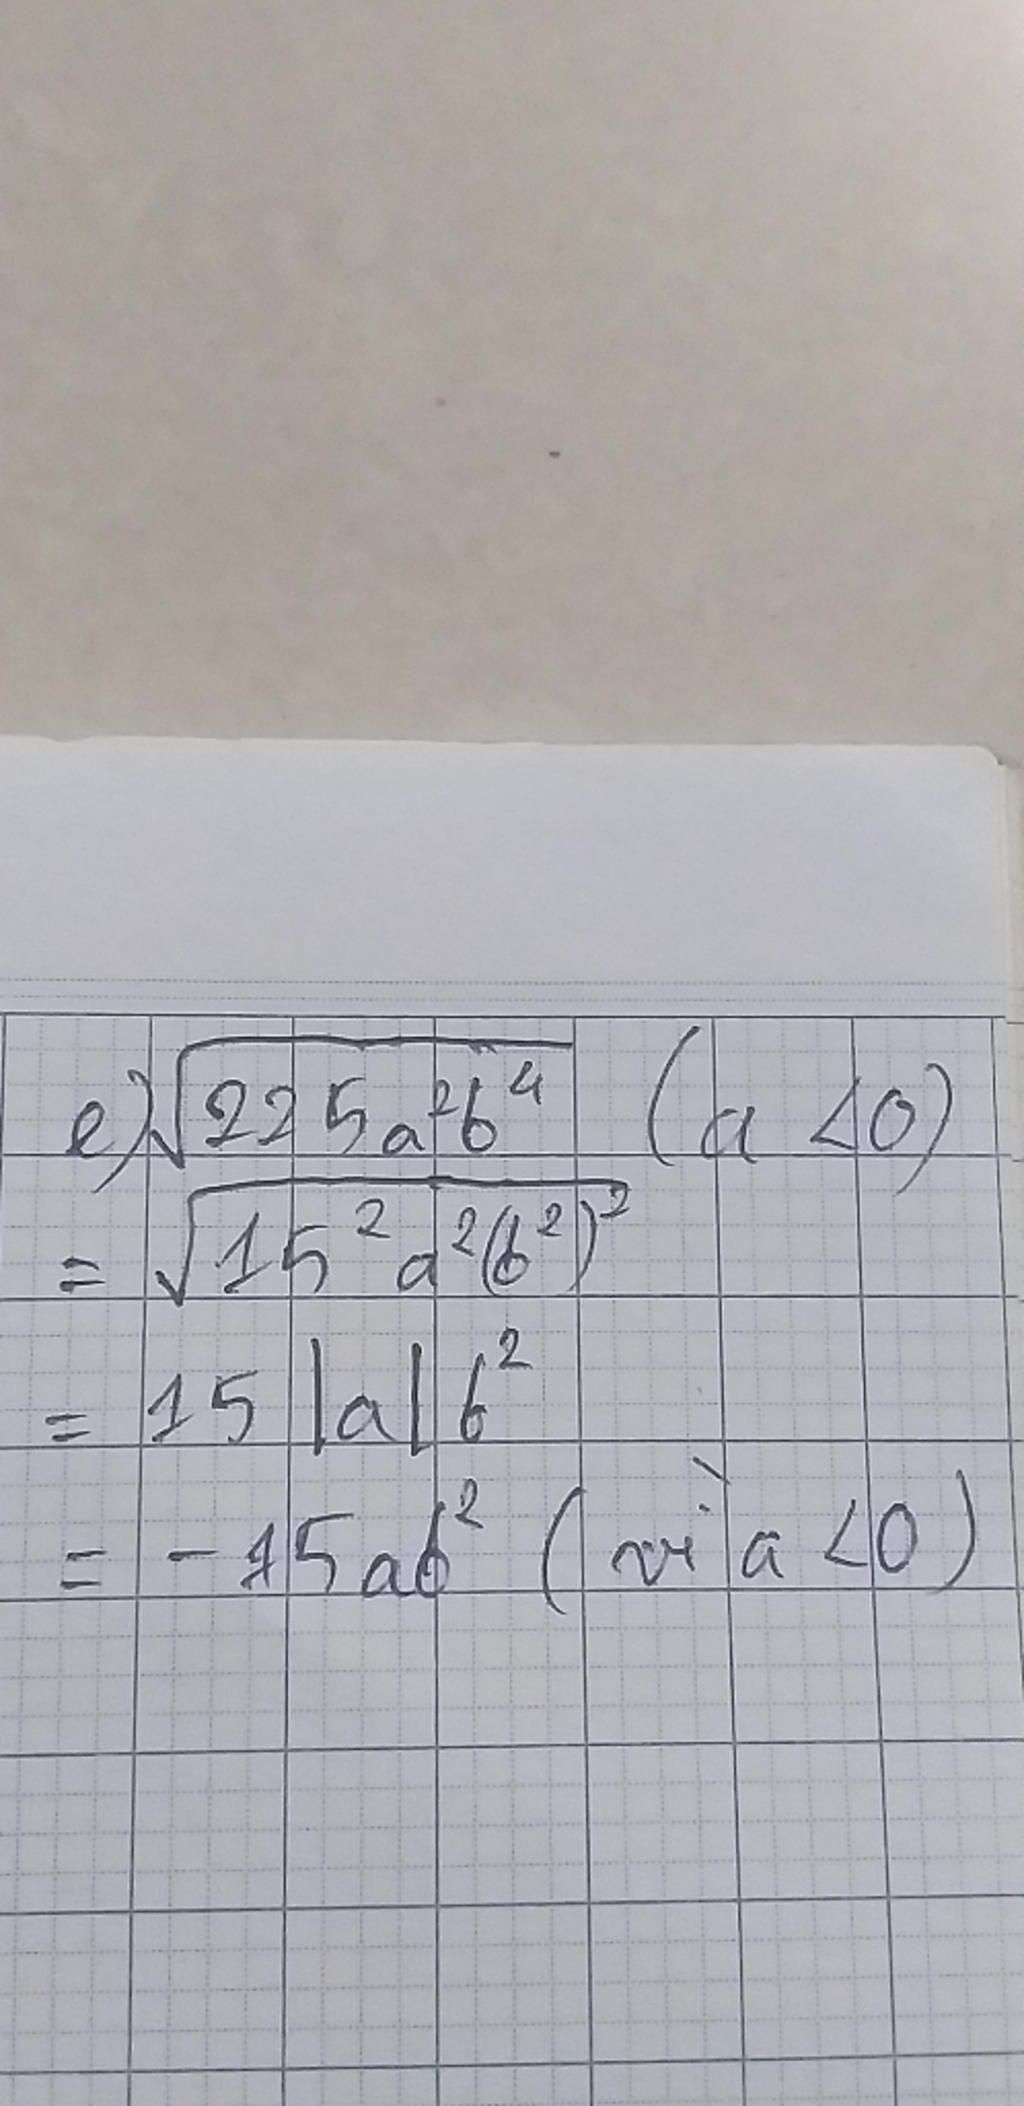 e) √225a²b⁴ (a <0)
= √15²a²(b²)²
= 15 |a| b²
= -15ab² (vì a <0)